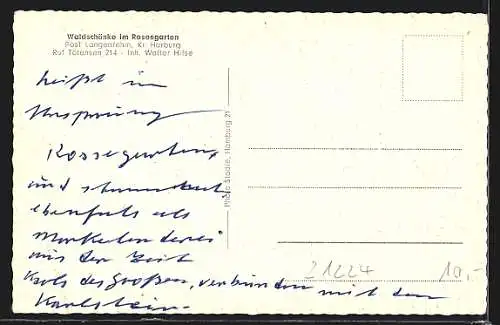 Waldschänke im Rosengarten
Post Langenrehm, Kr. Harburg
Ruf Tötensen 214 - Inh. Walter Hilse
heißt im
Ursprung
Rossegarten,
und stammt
ebenfals als
aus der Zeit
Karls des Großen, verbunden mit dem
Karlstein.
Photo Staale, Hamburg 21
Z1224
10,-